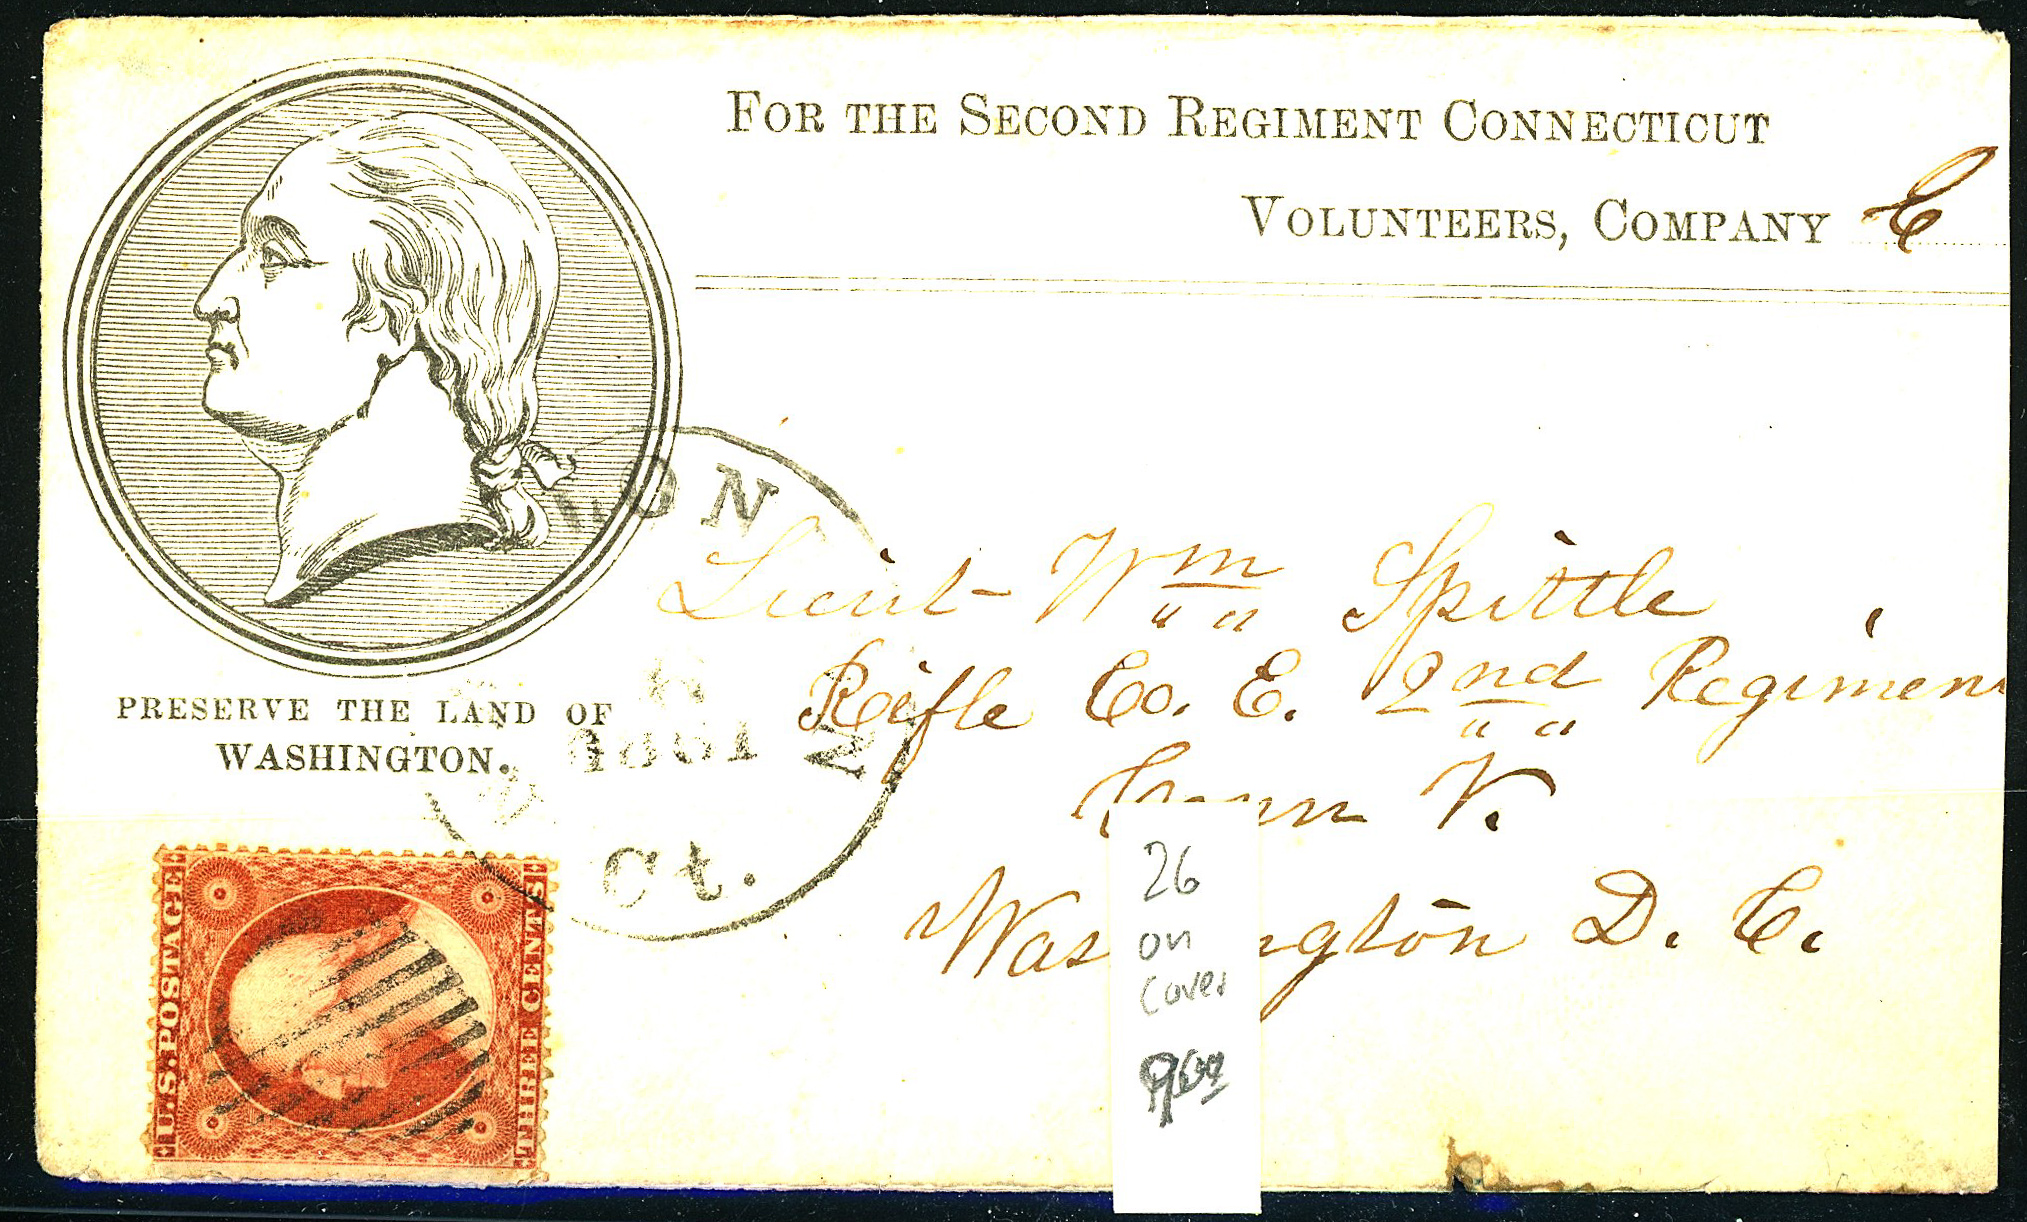 FOR THE SECOND REGIMENT CONNECTICUT
VOLUNTEERS, COMPANY E
PRESERVE THE LAND OF
WASHINGTON.
Lieut Wm Spittle
Rifle Co. E. 2nd Regimen
Conn V.
Washington D. C.
ON
1861
Ct.
U.S. POSTAGE
THREE CENTS
26
on
cover